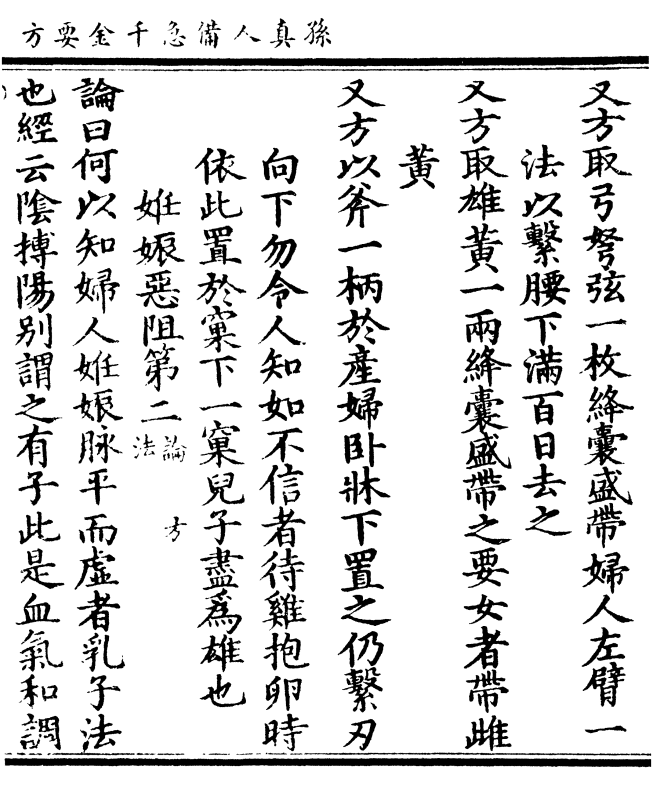 孫真人備急千金要方
又方取弓弩弦一枚絳囊盛帶婦人左臂一
法以繫腰下滿百日去之
又方取雄黃一兩絳囊盛帶之要女者帶雌
黃
又方以斧一柄於產婦卧牀下置之仍繫刃
向下勿令人知如不信者待雞抱卵時
依此置於窠下一窠兒子盡爲雄也
姙娠惡阻第二論 方 法
論曰何以知婦人姙娠脉平而虛者乳子法
也經云陰搏陽別謂之有子此是血氣和調